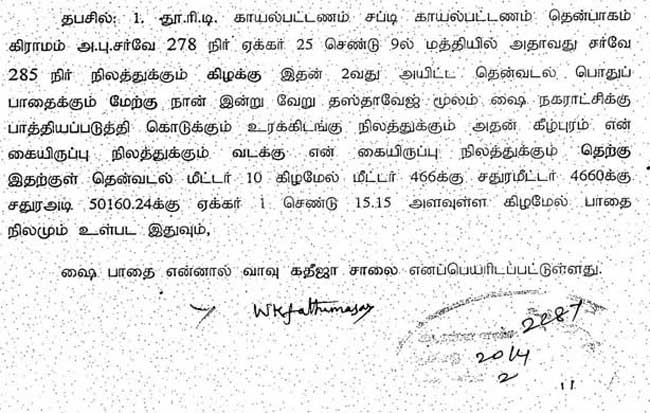 தபசில்: 1. தூ.ரி.டி. காயல்பட்டணம் சப்டி காயல்பட்டணம் தென்பாகம்
கிராமம் அ.பு.சர்வே 278 நிர் ஏக்கர் 25 செண்டு 9ல் மத்தியில் அதாவது சர்வே
285 நிர் நிலத்துக்கும் கிழக்கு இதன் 2வது அயிட்ட தென்வடல் பொதுப்
பாதைக்கும் மேற்கு நான் இன்று வேறு தஸ்தாவேஜ் மூலம் ஷை நகராட்சிக்கு
பாத்தியப்படுத்தி கொடுக்கும் உரக்கிடங்கு நிலத்துக்கும் அதன் கீழ்புரம் என்
கையிருப்பு நிலத்துக்கும் வடக்கு என் கையிருப்பு நிலத்துக்கும் தெற்கு
இதற்குள் தென்வடல் மீட்டர் 10 கிழமேல் மீட்டர் 466க்கு சதுரமீட்டர் 4660க்கு
சதுரஅடி 50160.24க்கு ஏக்கர் 1 செண்டு 15.15 அளவுள்ள கிழமேல் பாதை
நிலமும் உள்பட இதுவும்,
ஷை பாதை என்னால் வாவு கதீஜா சாலை எனப்பெயரிடப்பட்டுள்ளது.
2287
2014
2
11